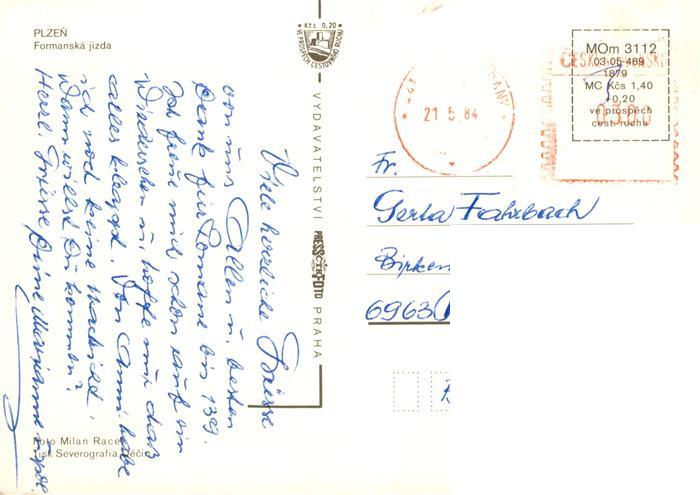 PLZEŇ
Formanská jízda
Kčs 0,20
VE PROSPĚCH CESTOVNÍHO RUCHU
VYDAVATELSTVÍ PRESSFOTO PRAHA
21.5.84
MOm 3112
03-05-489
1879
MC Kčs 1,40
+0,20
ve prospěch
cest. ruchu
Fr.
Gerta Fahrbach
Birken
6963
Viele herzliche Grüsse
von uns Allen u. besten
Dank für Romane bis 139.
Ich freue mich schon auf ein
Wiedersehen u. hoffe nur daß
alles klappt. Von Anni habe
ich noch keine Nachricht.
Wann willst Du kommen?
Herzl. Grüsse Deine Marianne
Foto Milan Race
Tisk Severografia Děčín